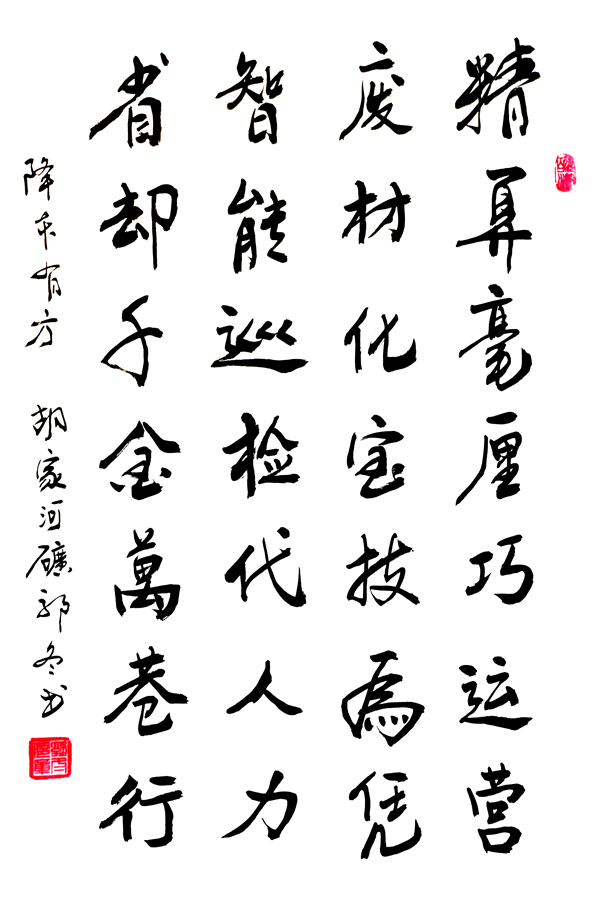 精算毫厘巧运营
废材化宝技為凭
智能巡检代人力
省却千金萬巷行
降本有方 胡家河礦郭冬书